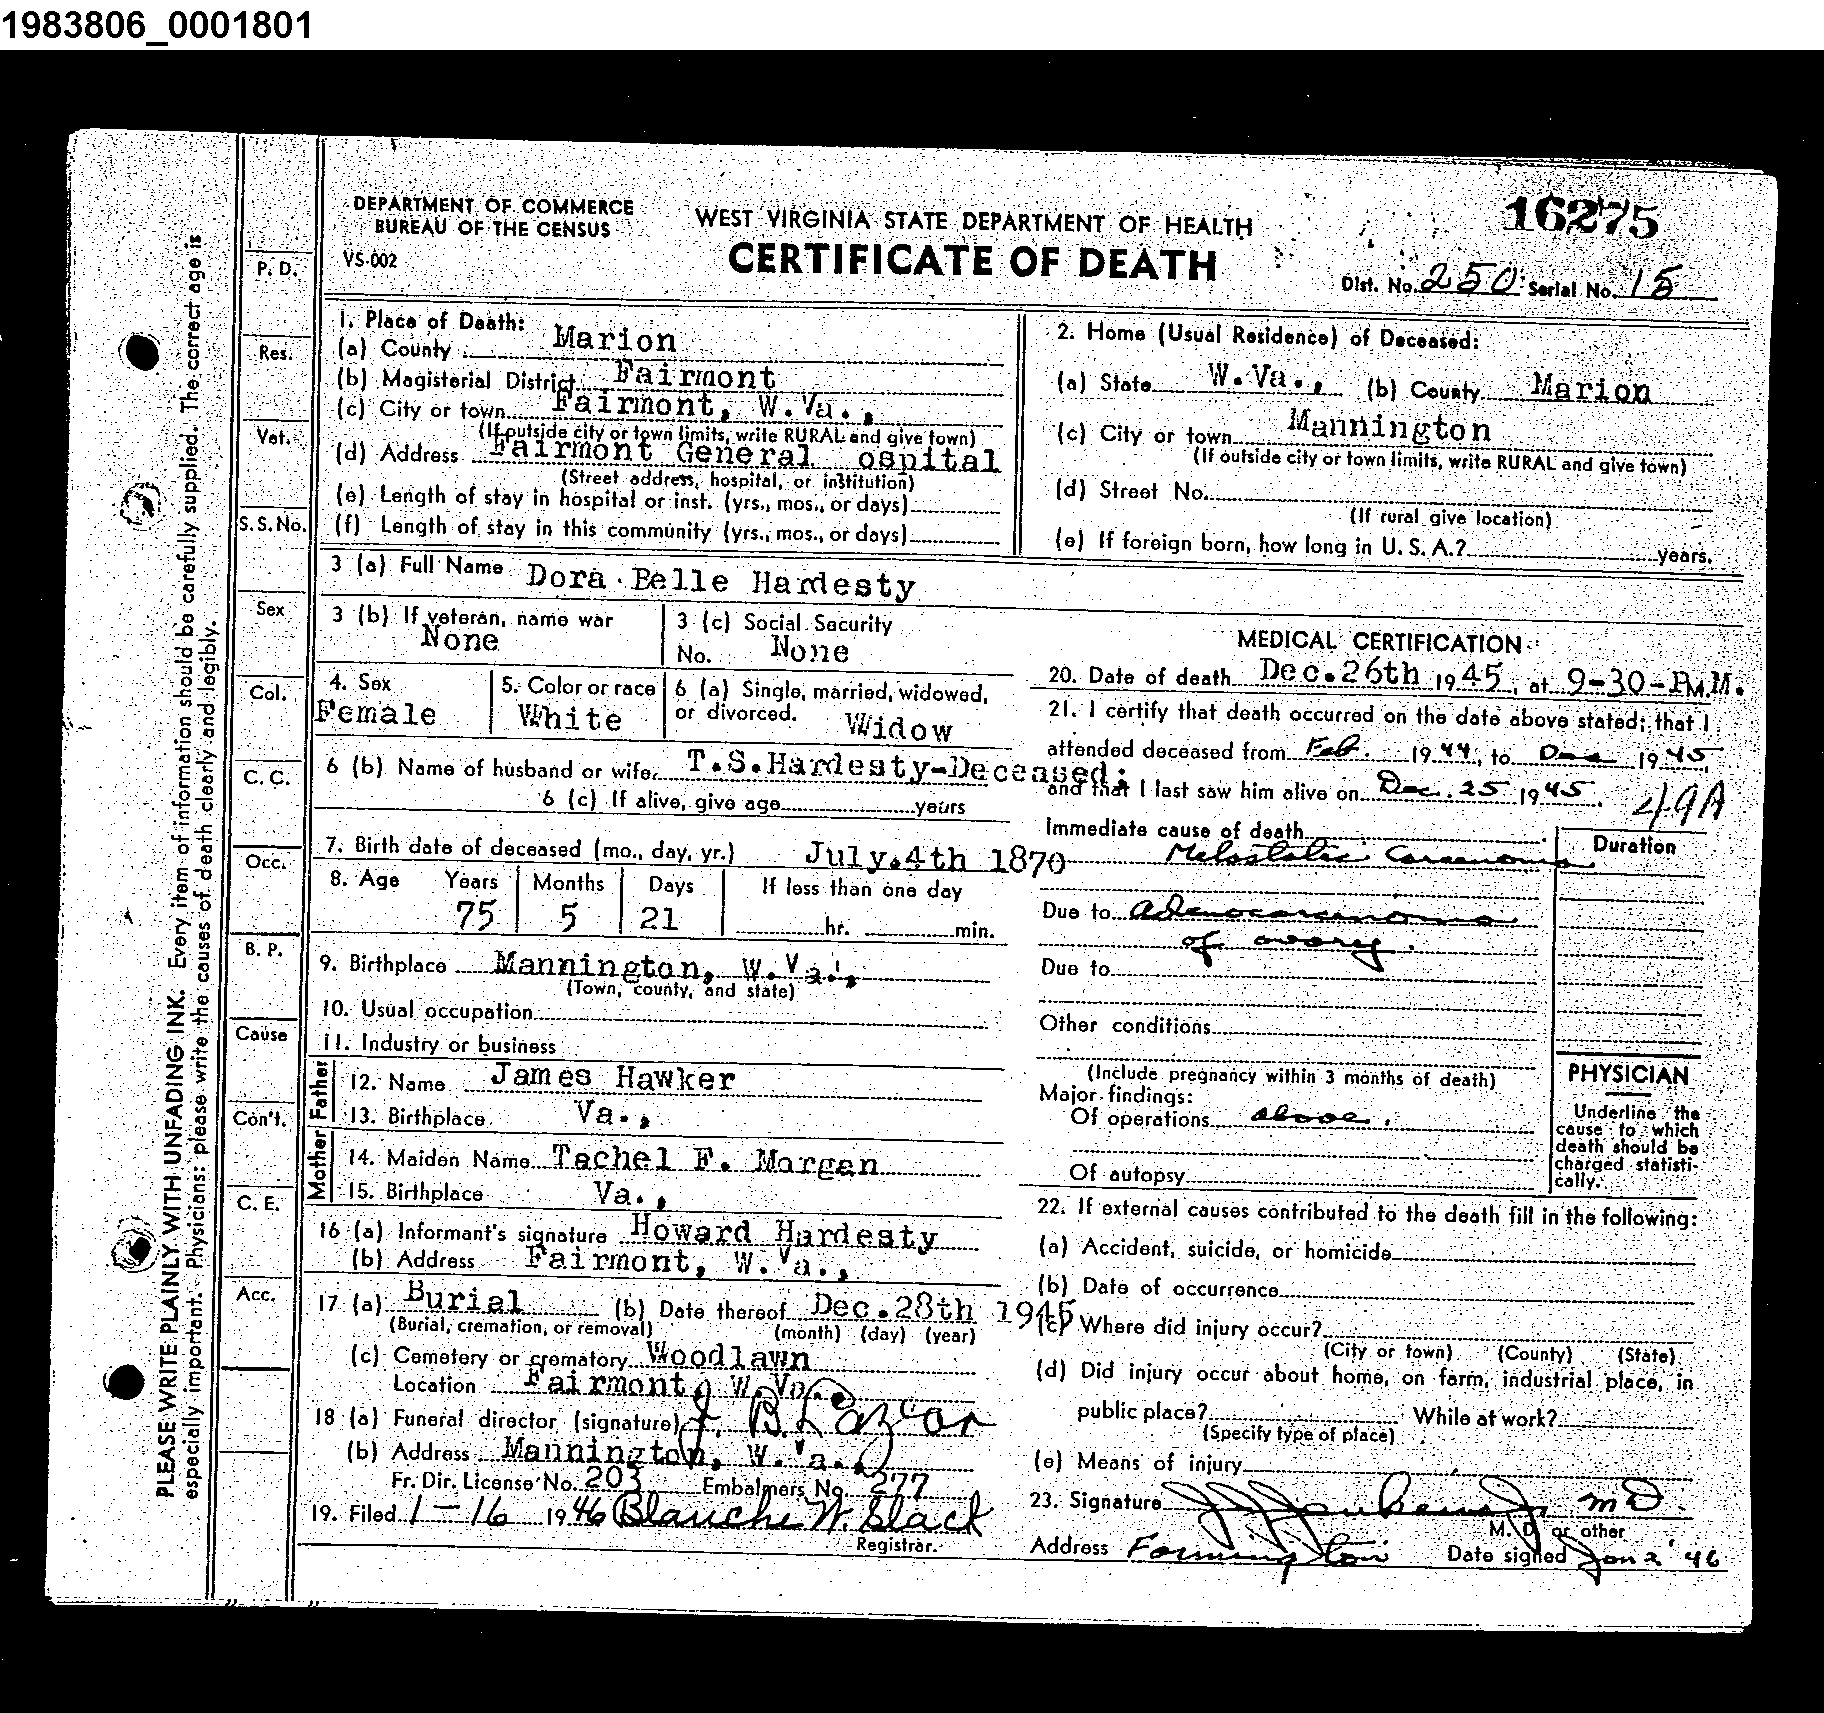 1983806_0001801
DEPARTMENT OF COMMERCE
BUREAU OF THE CENSUS
VS-002
WEST VIRGINIA STATE DEPARTMENT OF HEALTH
CERTIFICATE OF DEATH
16275
Dist. No. 250 Serial No. 15
PLEASE WRITE PLAINLY WITH UNFADING INK. Every item of information should be carefully supplied. The correct age is
especially important. Physicians: please write the causes of death clearly and legibly.
P. D.
Res.
Vet.
S. S. No.
Sex
Col.
C. C.
Occ.
B. P.
Cause
Con't.
C. E.
Acc.
1. Place of Death:
(a) County Marion
(b) Magisterial District Fairmont
(c) City or town Fairmont, W.Va.,
(If outside city or town limits, write RURAL and give town)
(d) Address Fairmont General ospital
(Street address, hospital, or institution)
(e) Length of stay in hospital or inst. (yrs., mos., or days)
(f) Length of stay in this community (yrs., mos., or days)
2. Home (Usual Residence) of Deceased:
(a) State W.Va., (b) County Marion
(c) City or town Mannington
(If outside city or town limits, write RURAL and give town)
(d) Street No.
(If rural give location)
(e) If foreign born, how long in U. S. A.? years.
3 (a) Full Name Dora Belle Hardesty
3 (b) If veteran, name war None
3 (c) Social Security No. None
4. Sex Female
5. Color or race White
6 (a) Single, married, widowed, or divorced. Widow
6 (b) Name of husband or wife T.S.Hardesty-Deceased;
6 (c) If alive, give age years
7. Birth date of deceased (mo., day, yr.) July.4th 1870
8. Age Years Months Days If less than one day
75 5 21 hr. min.
9. Birthplace Mannington, W.Va.,
(Town, county, and state)
10. Usual occupation
11. Industry or business
Father
12. Name James Hawker
13. Birthplace Va.,
Mother
14. Maiden Name Tachel F. Morgan
15. Birthplace Va.,
16 (a) Informant's signature Howard Hardesty
(b) Address Fairmont, W.Va.,
17 (a) Burial (b) Date thereof Dec.28th 1945
(Burial, cremation, or removal) (month) (day) (year)
(c) Cemetery or crematory Woodlawn
Location Fairmont, W.Va.
18 (a) Funeral director (signature) J. B. Lazear
(b) Address Mannington, W.Va.,
Fr. Dir. License No. 203 Embalmers No. 277
19. Filed 1-16 1946 Blanche W. Black
Registrar.
MEDICAL CERTIFICATION
20. Date of death Dec.26th 1945, at 9-30-P.M.
21. I certify that death occurred on the date above stated; that I
attended deceased from Feb. 1944, to Dec 1945,
and that I last saw him alive on Dec. 25 1945.
49A
Immediate cause of death
Metastatic Carcenoma
Duration
Due to adenocarcinoma
of ovary.
Due to
Other conditions
(Include pregnancy within 3 months of death)
Major findings:
Of operations above.
Of autopsy
PHYSICIAN
Underline the
cause to which
death should be
charged statisti-
cally.
22. If external causes contributed to the death fill in the following:
(a) Accident, suicide, or homicide
(b) Date of occurrence
(c) Where did injury occur?
(City or town) (County) (State)
(d) Did injury occur about home, on farm, industrial place, in
public place? While at work?
(Specify type of place)
(e) Means of injury
23. Signature M D.
M. D. or other
Address Farmington Date signed Jan 2 '46